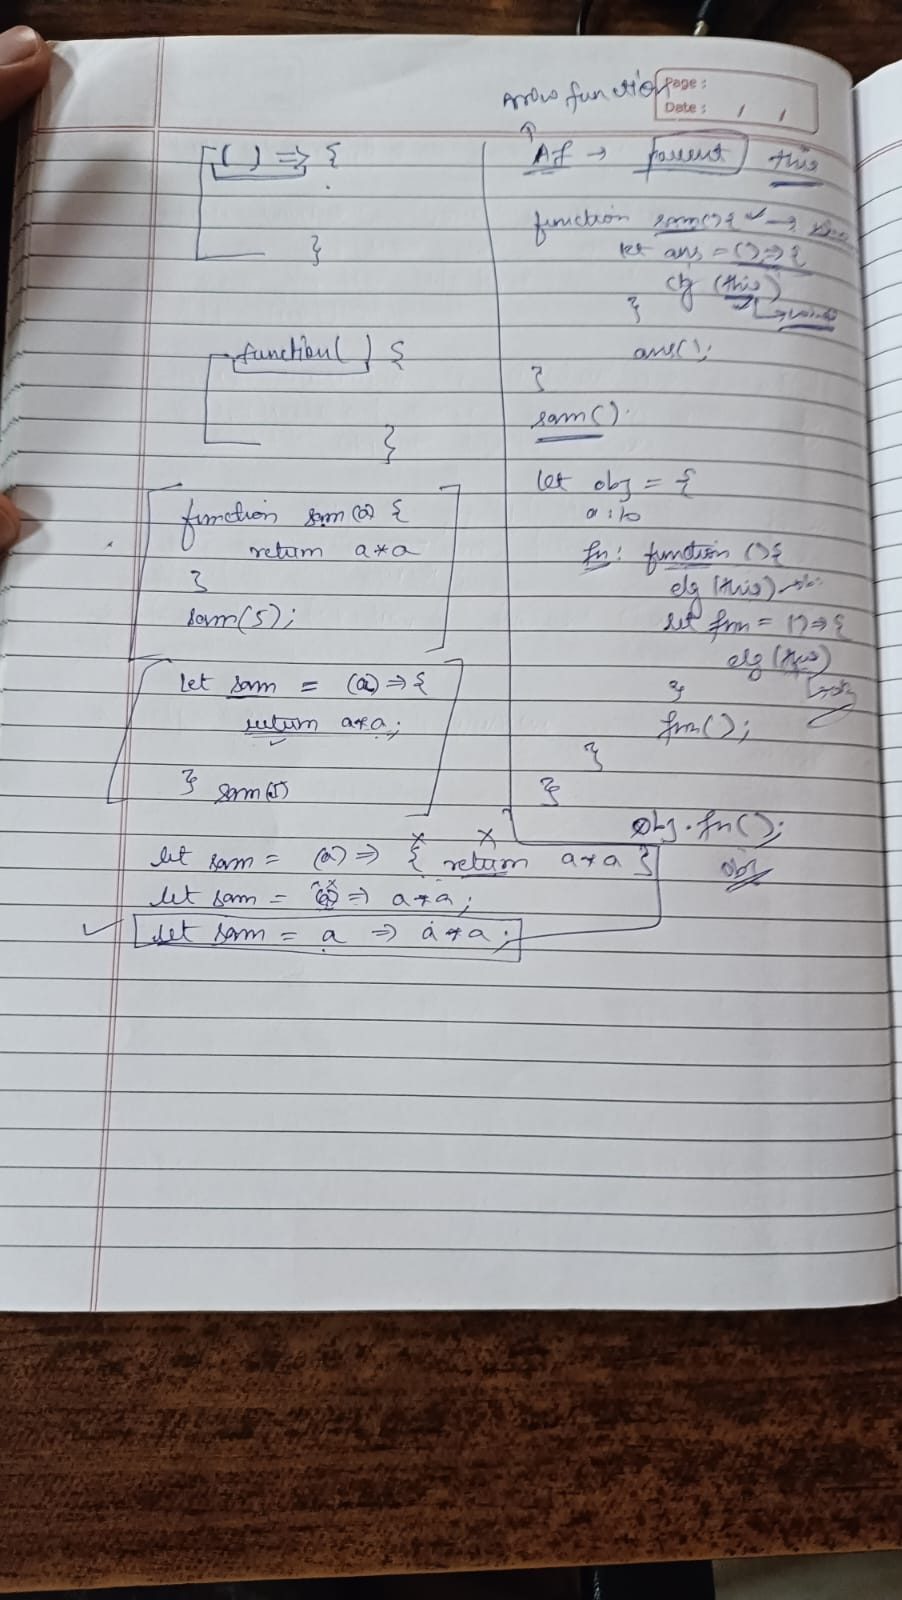 Arrow function
Page :
Date : / /
( ) => {
}
function( ) {
}
function sam(a) {
return a*a
}
sam(5);
let sam = (a) => {
return a*a;
} sam(5)
let sam = (a) => { return a*a }
let sam = (a) => a*a;
let sam = a => a*a;
AF → parent this
function sam() {
let ans = () => {
clg (this)
}
ans();
}
sam().
let obj = {
a : 10
fn : function () {
clg (this)
let fnn = () => {
clg (this)
}
fnn();
}
}
obj.fn();
obj